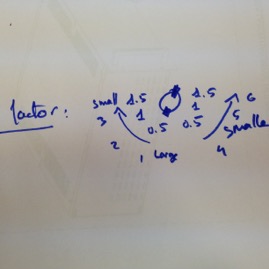 factor:
small 1.5 1.5 6
3 1 1 5
0.5 0.5 smalle
2 1 large 4